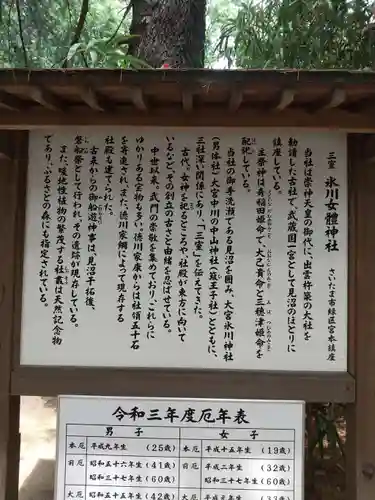 三室 氷川女體神社
さいたま市緑区宮本鎮座
当社は崇神天皇の御代に、出雲杵築の大社を
勧請した古社で、武蔵国一宮として見沼のほとりに
鎮座している。
主祭神は奇稲田姫命で、大己貴命と三穂津姫命を
配祀している。
当社の御手洗瀬である見沼を囲み、大宮氷川神社
(男体社)大宮中川の中山神社(簸王子社)とともに、
三社深い関係にあり、「三室」を伝えてきた。
古代。女神を祀るところや、社殿が東方に向いて
いるなど、その創立の古さと由緒を忍ばせている。
中世以来、武門の崇敬を集めており、これらに
ゆかりある宝物も多い。徳川家康からは社領五十石
を寄進され、また、徳川家綱によって現存する
社殿も建てられた。
古来からの御船遊神事は見沼干拓後、
磐船祭として行われ、その遺跡が現存している。
また、暖地性植物の繁茂する社叢は天然記念物
であり、ふるさとの森にも指定されている。
令和三年度厄年表
男子 女子
本厄 平成九年生 (25歳) 本厄 平成十五年生 (19歳)
前厄 昭和五十六年生 (41歳) 前厄 平成二年生 (32歳)
昭和三十七年生 (60歳) 昭和三十七年生 (60歳)
大厄 昭和五十五年生 (42歳) 大厄 平成元年生 (33歳)